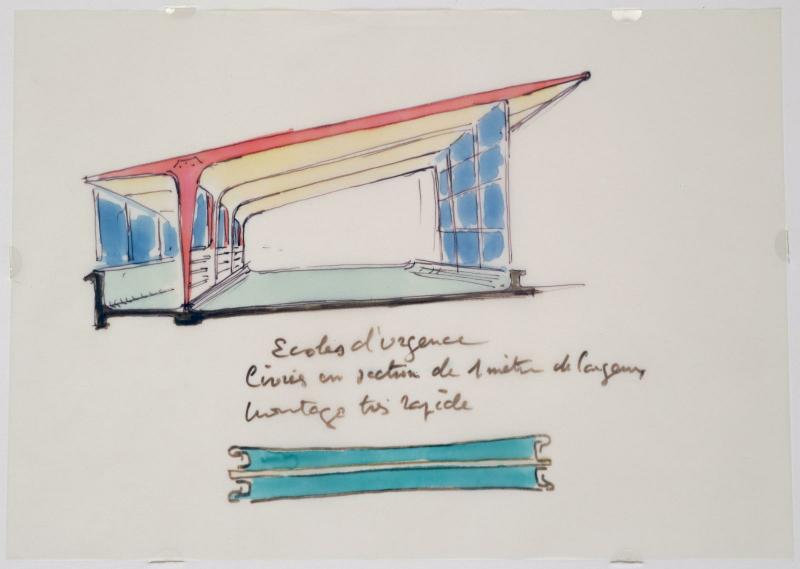 Ecoles d'urgence
Livrés en section de 1 mètre de largeur
montage très rapide